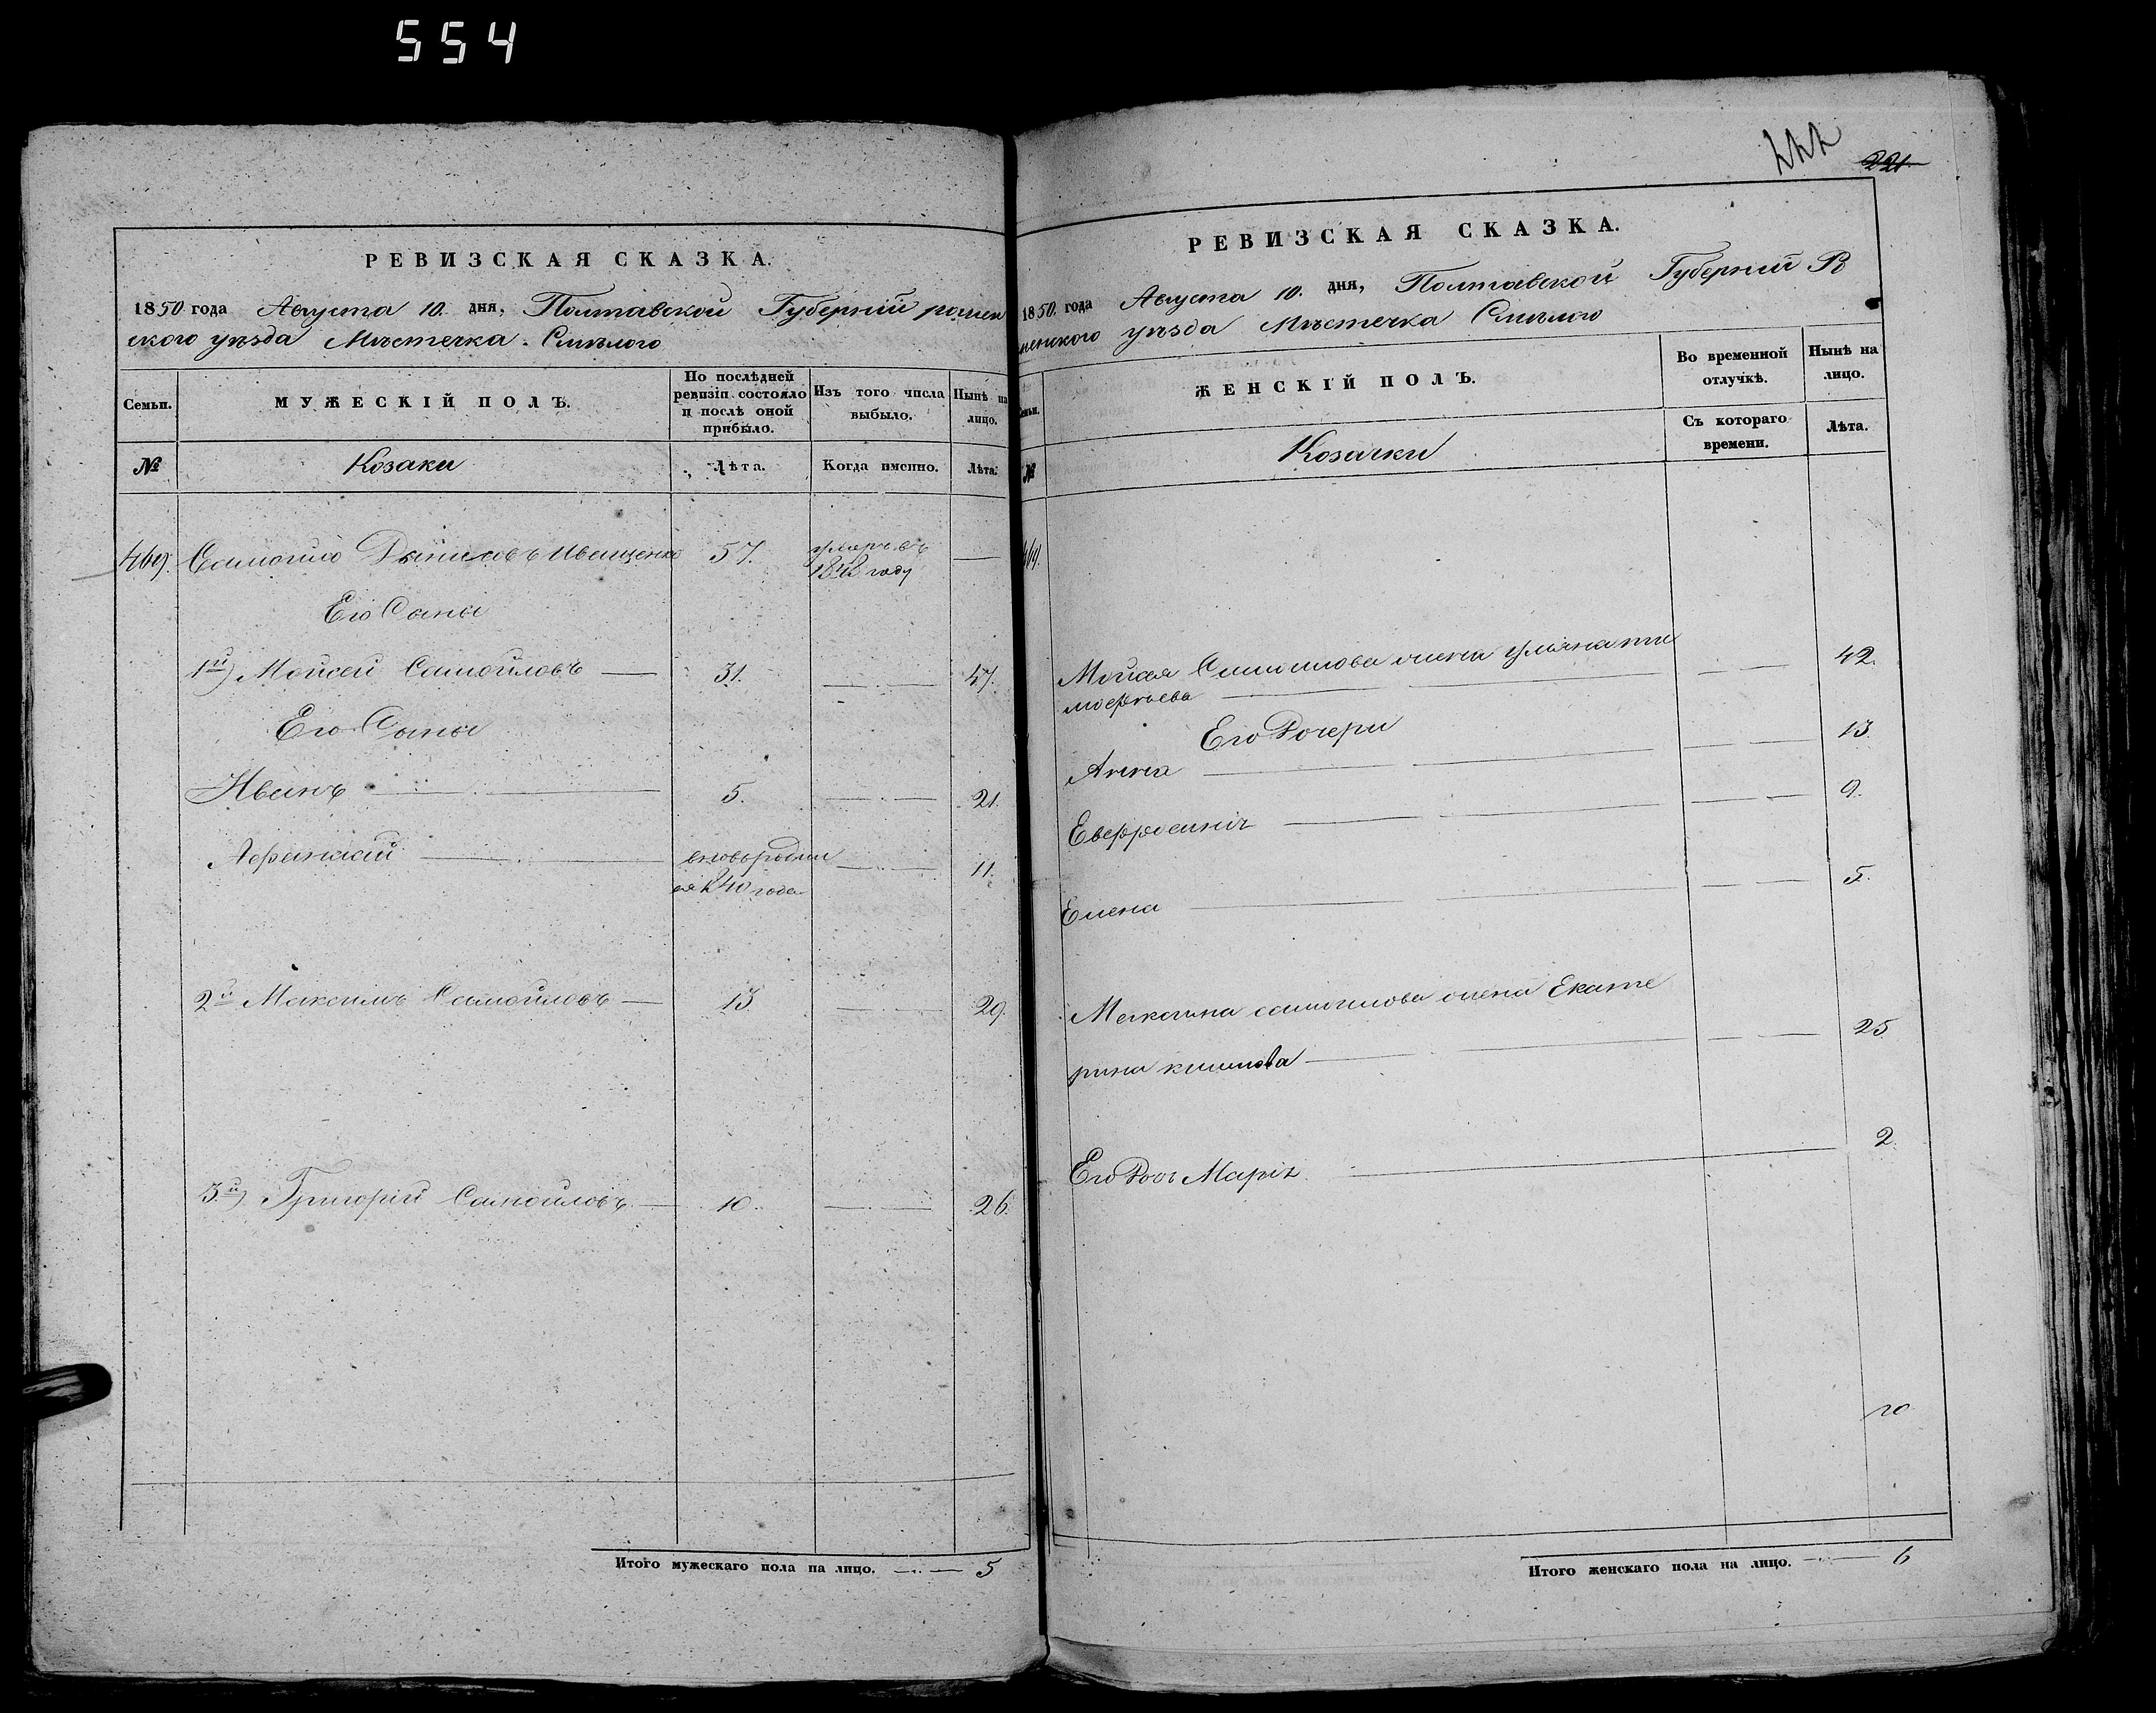 554
РЕВИЗСКАЯ СКАЗКА.
1850 года Августа 10. дня, Полтавской Губерніи ромен
ского уѣзда Мѣстечка Смѣлого
Семьи.
МУЖЕСКІЙ ПОЛЪ.
По послѣдней
ревизіи состояло
и послѣ оной
прибыло.
Изъ того числа
выбыло.
Нынѣ на
лицо.
№
Козаки
Лѣта.
Когда именно.
Лѣта.
469. Самойло Даниловъ Иващенко 57. умеръ въ
1848 году
Его Сыны
1й) Мойсей Самойловъ 31. 47.
Его Сыны
Иванъ 5. 21.
Афанасий вновь родил
ся 1840 года 11.
2й Максимъ Самойловъ 13. 29.
3й) Григорій Самойловъ 10. 26.
Итого мужескаго пола на лицо. 5
222
221.
РЕВИЗСКАЯ СКАЗКА.
1850. года Августа 10. дня, Полтавской Губерніи Р
менского уѣзда Мѣстечка Смѣлого
Семьи.
ЖЕНСКІЙ ПОЛЪ.
Во временной
отлучкѣ.
Нынѣ на
лицо.
№
Козачки
Съ котораго
времени.
Лѣта.
469.
Мойсея Самойлова жена Ульяна ти
мофеева 42.
Его Дочери
Анна 13.
Евфросинія 9.
Елена 5.
Максима самойлова жена Екате
рина 25.
Его Дочь Марія 2.
Итого женскаго пола на лицо. 6